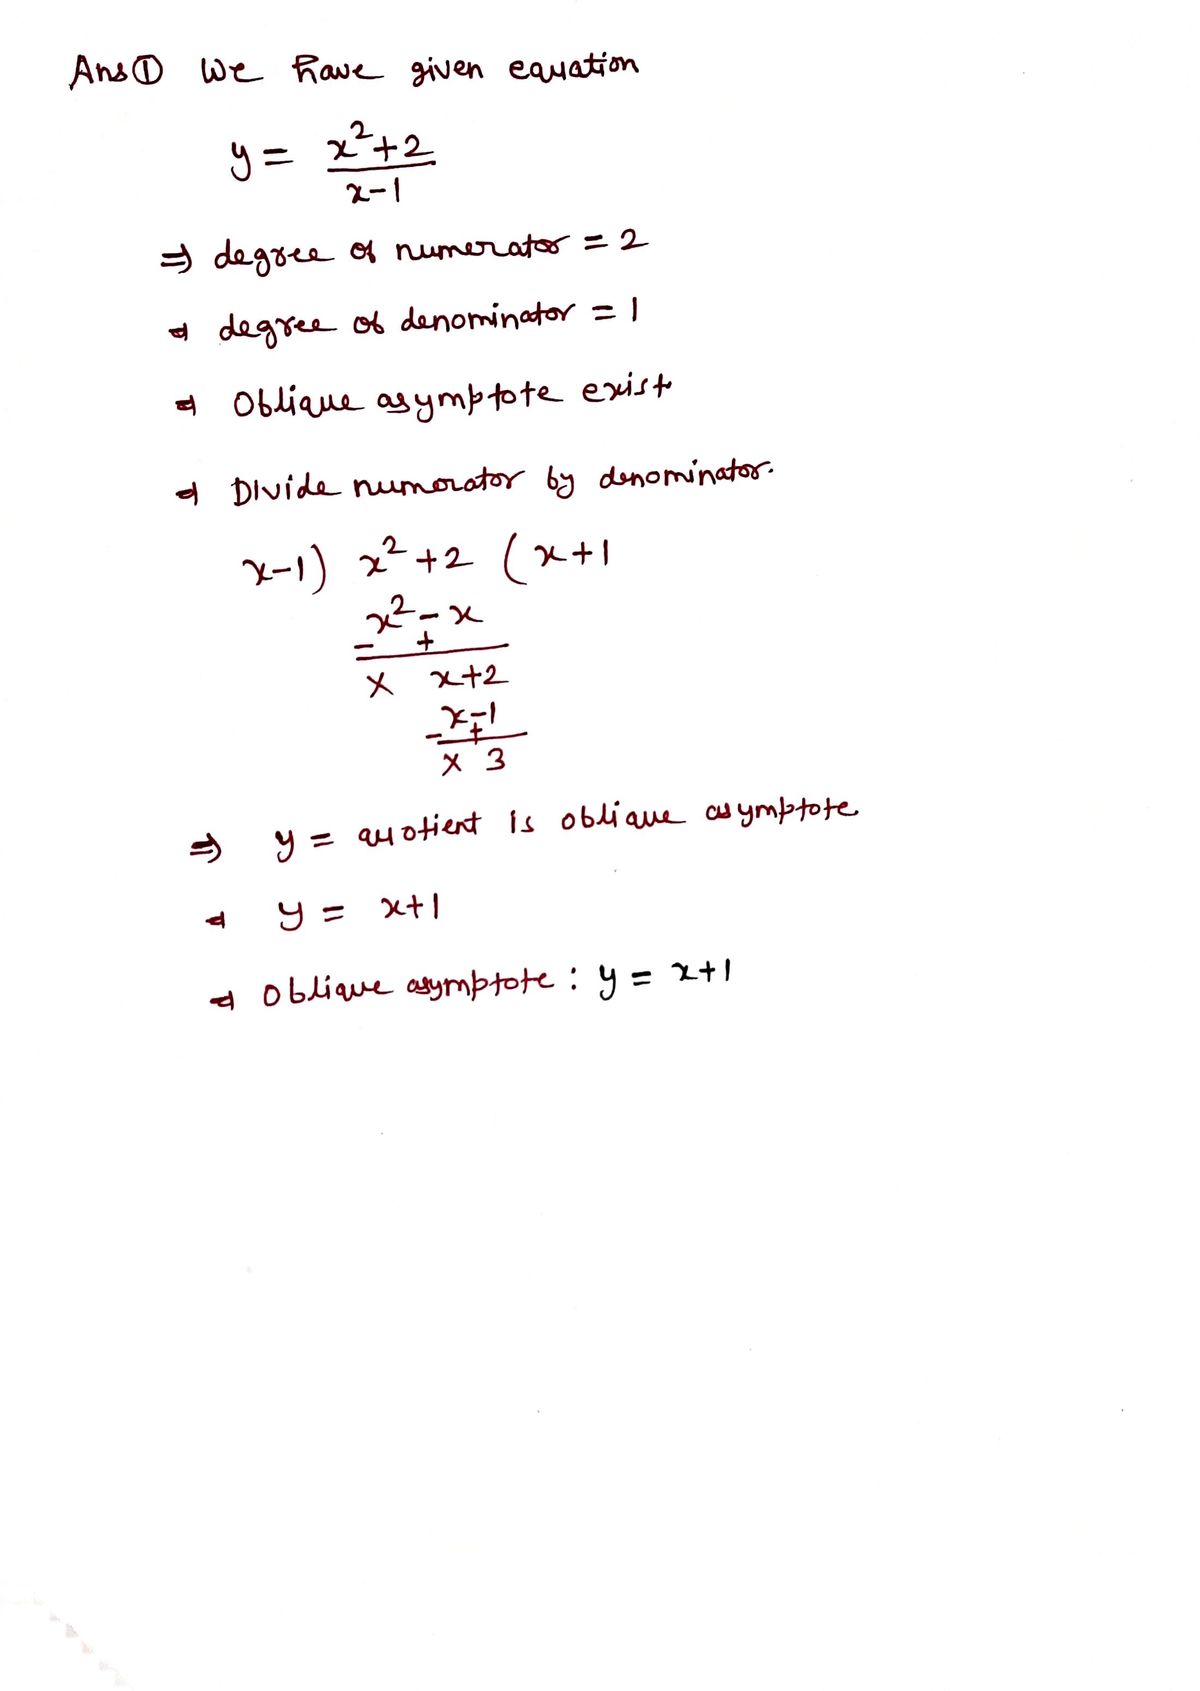 Ans ① We have given equation
y = x²+2
x-1
⇒ degree of numerator = 2
⇒ degree of denominator = 1
⇒ Oblique asymptote exist
⇒ Divide numerator by denominator.
x-1) x²+2 (x+1
x²-x
- +
x x+2
x-1
- +
x 3
⇒ y = quotient is oblique asymptote
⇒ y = x+1
⇒ Oblique asymptote : y = x+1